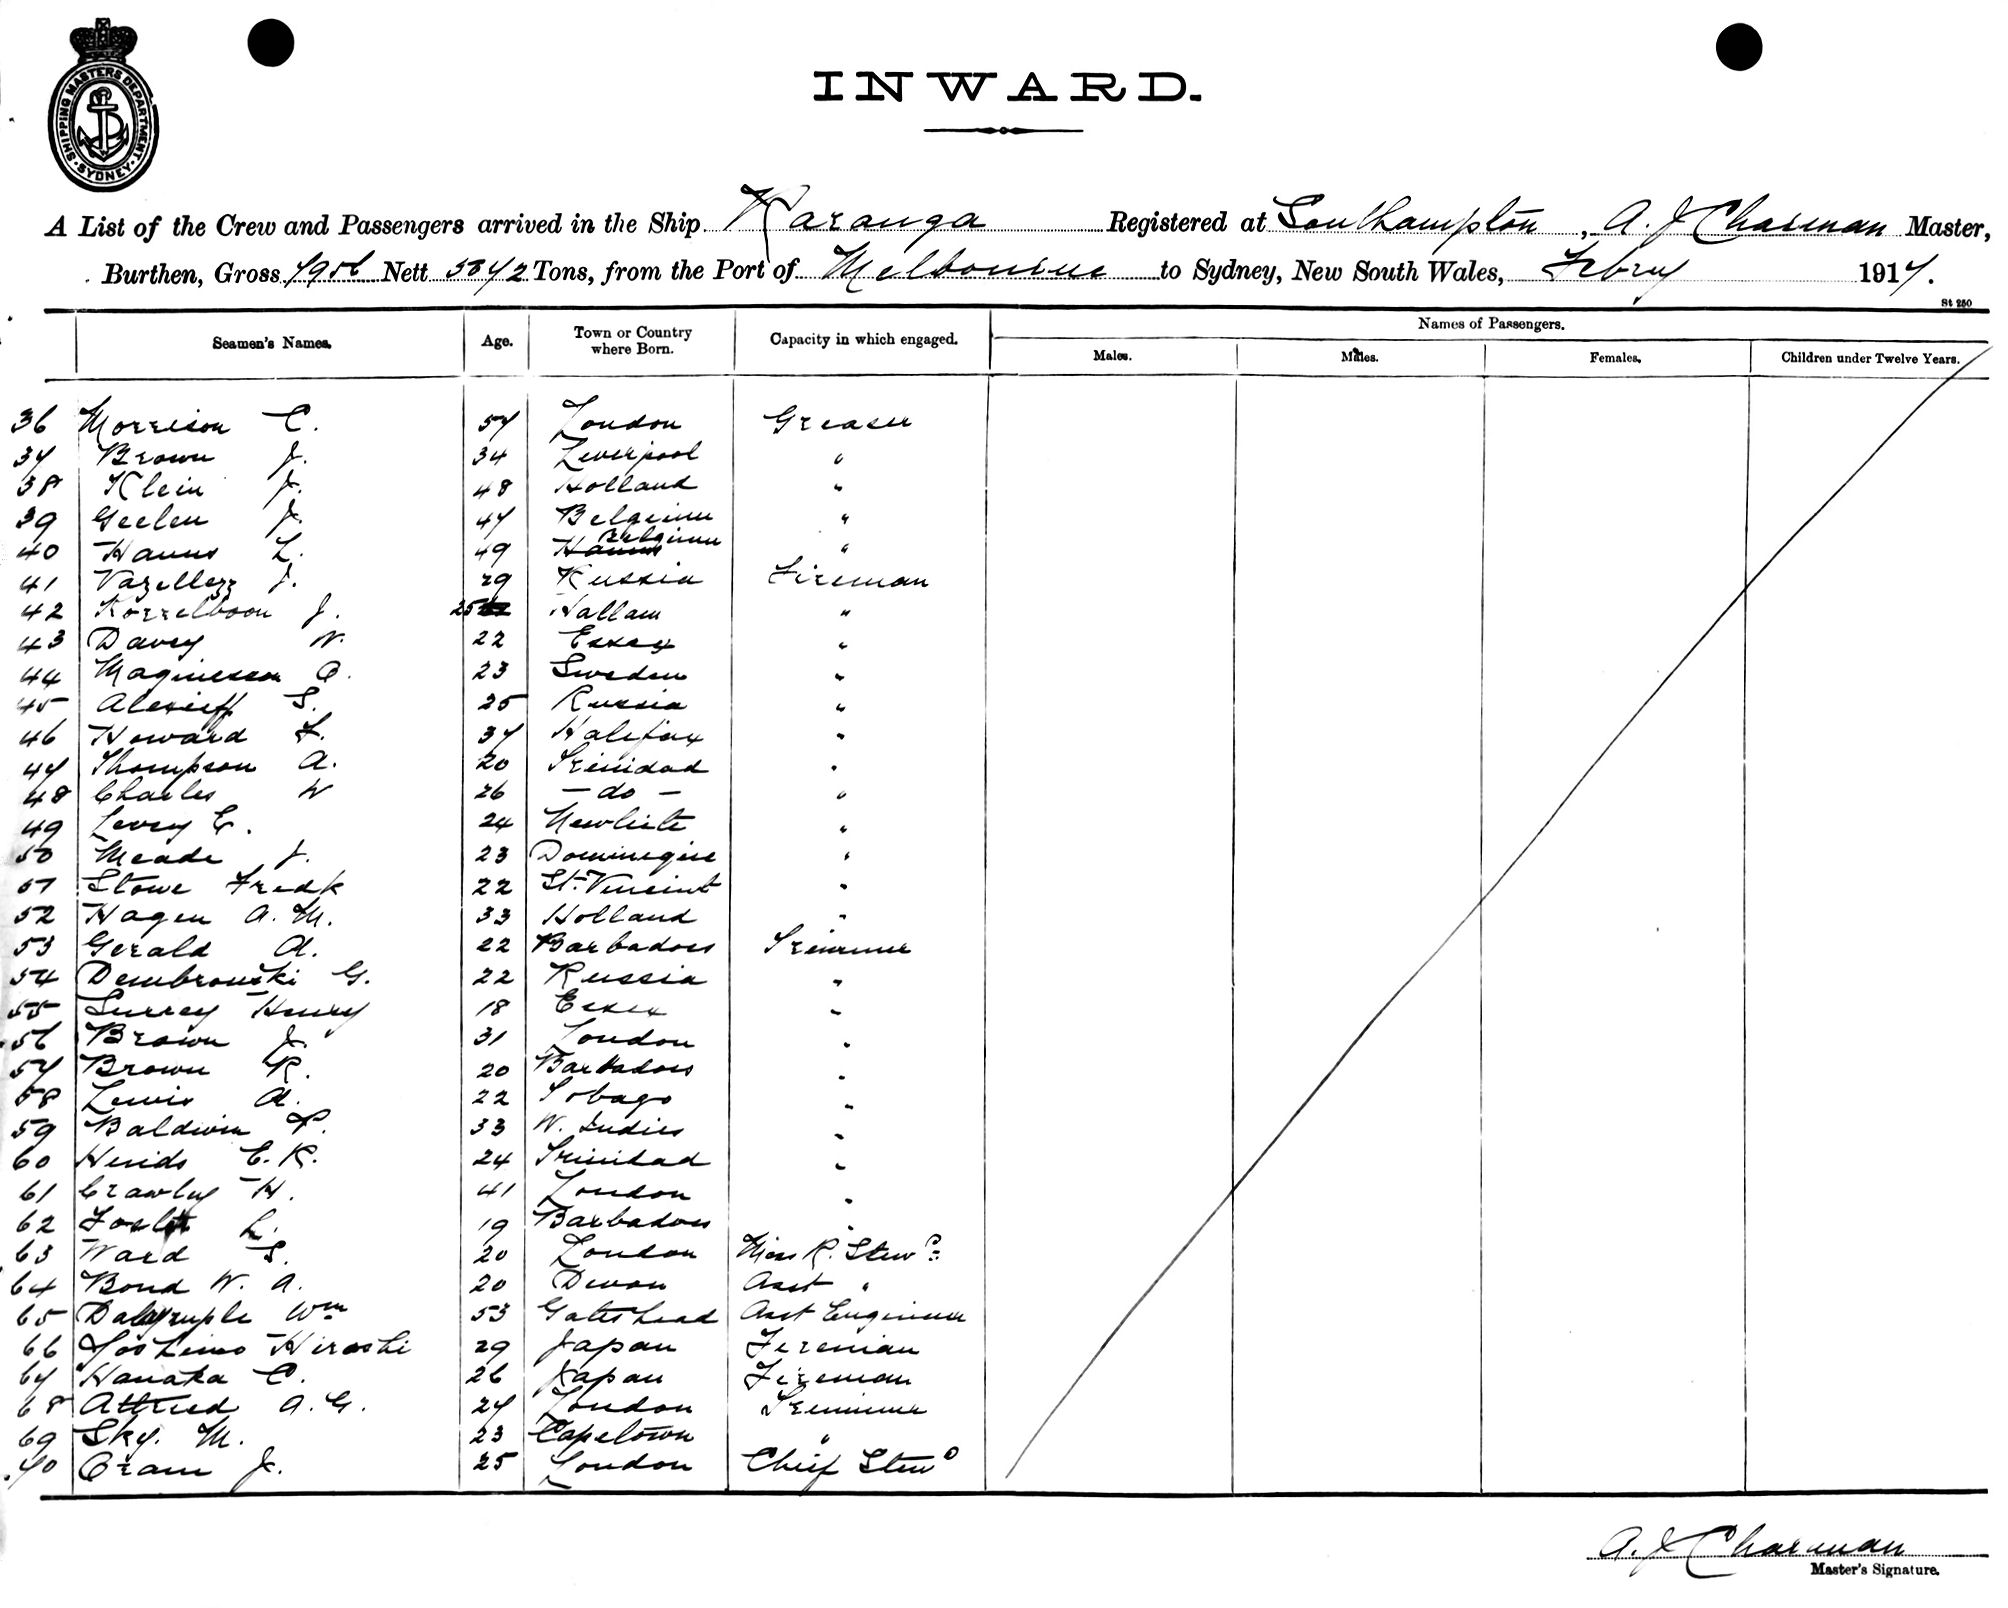 SHIPPING MASTERS DEPARTMENT · SYDNEY ·
INWARD.
A List of the Crew and Passengers arrived in the Ship Karanga Registered at Southampton, A. J Charman Master,
Burthen, Gross 7956 Nett 5842 Tons, from the Port of Melbourne to Sydney, New South Wales, Febry 1917.
St 250
Seamen's Names. Age. Town or Country where Born. Capacity in which engaged. Names of Passengers.
Males. Males. Females. Children under Twelve Years.
36 Morrison C. 57 London Greaser
37 Brown J. 34 Liverpool "
38 Klein J. 48 Holland "
39 Geelen J. 47 Belgium "
40 Hanns L. 49 Hanns Belgium "
41 J. 29 Russia Fireman
42 J. 25 "
43 Davey W. 22 Essex "
44 Magnesson O. 23 Sweden "
45 Alexieff S. 25 Russia "
46 Howard F. 37 Halifax "
47 Thompson A. 20 Trinidad "
48 Charles W 26 - do - "
49 Levey E. 24 "
50 Meade J. 23 Dominique "
51 Stowe Fredk 22 St. Vincint "
52 Hagen A. M. 33 Holland "
53 Gerald A. 22 Barbadoes Trimmer
54 Dembrouski G. 22 Russia "
55 Surrey Henry 18 Essex "
56 Brown J. 31 London "
57 Brown R. 20 Barbadoes "
58 Lewis A. 22 Tobago "
59 Baldwin 33 W. Indies "
60 Hinds E. R. 24 Trinidad "
61 Crawley H. 41 London "
62 L. 19 Barbadoes "
63 Ward S. 20 London Mess R. Stewd
64 Bond W. A. 20 Devon Asst "
65 Dalrymple Wm 53 Gateshead Asst Engineer
66 Yoshimo Hiroshi 29 Japan Fireman
67 Hanaka C. 26 Japan Fireman
68 Attreed A. G. 27 London Trimmer
69 Sky. M. 23 Capetown "
70 Oram J. 25 London Chief Stewd
A. J Charman
Master's Signature.